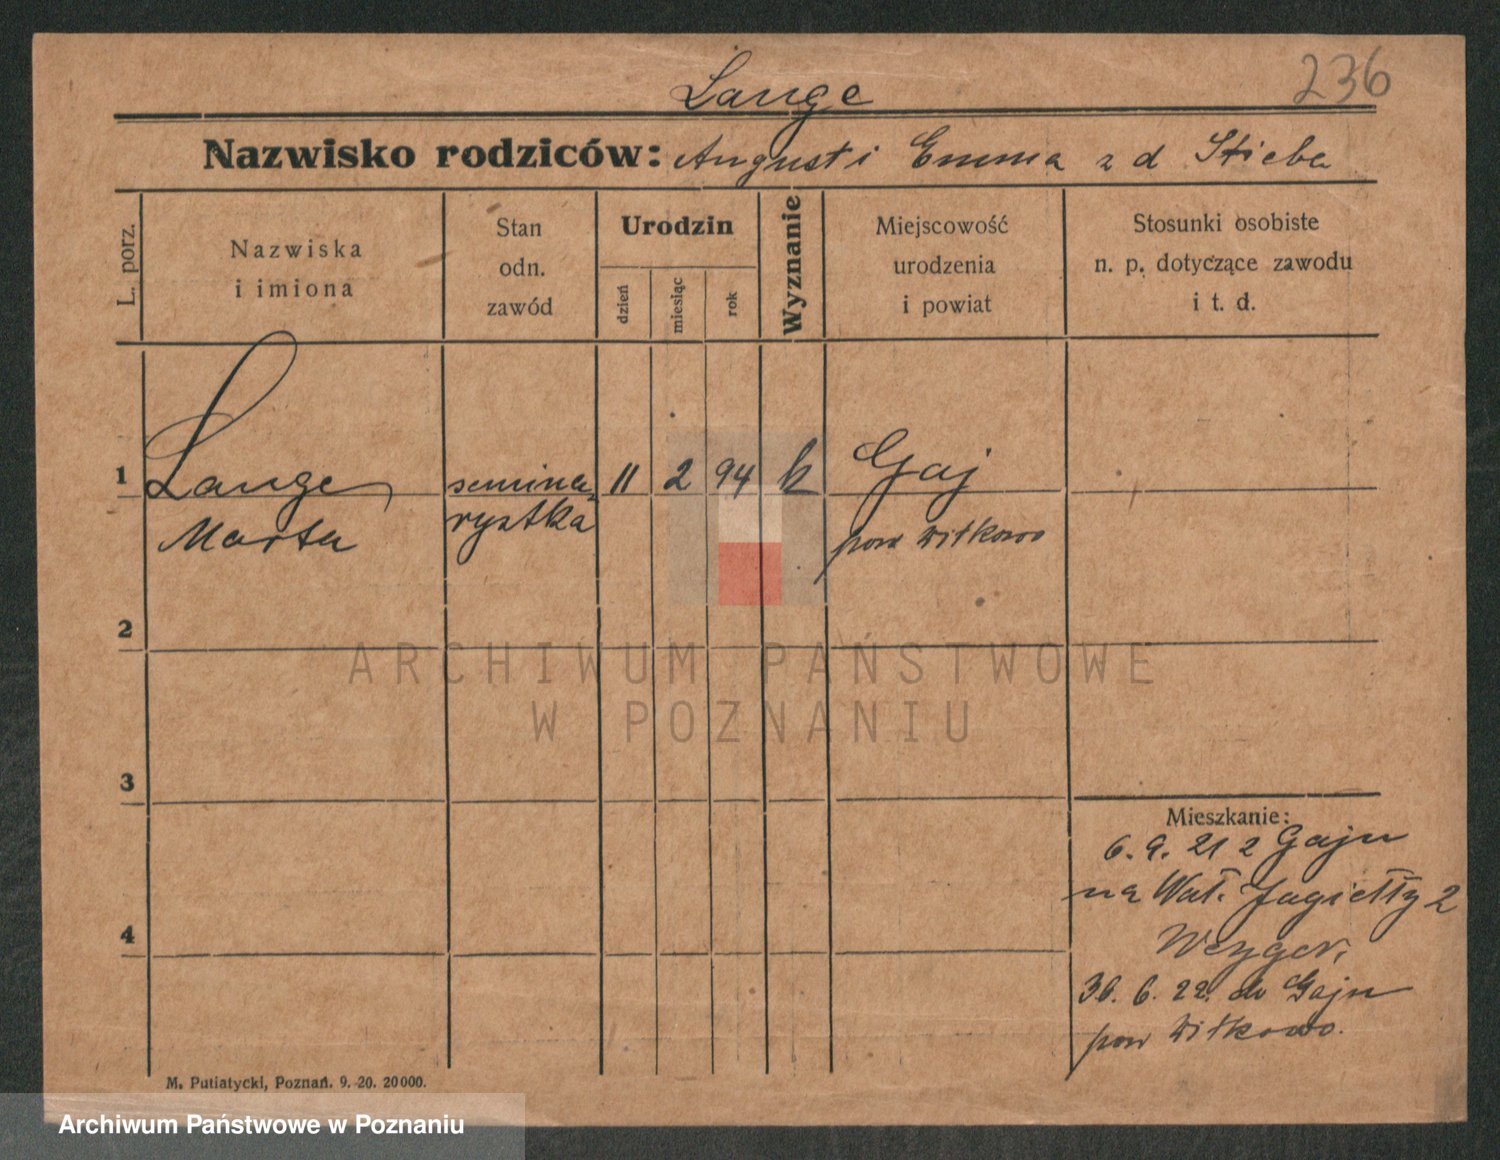 236
Lange
Nazwisko rodziców: August i Emma z d Stiebe
L. porz.
Nazwiska
i imiona
Stan
odn.
zawód
Urodzin
dzień
miesiąc
rok
Wyznanie
Miejscowość
urodzenia
i powiat
Stosunki osobiste
n. p. dotyczące zawodu
i t. d.
1
Lange
Marta
semina-
rystka
11
2
94
k
Gaj
pow Witkowo
2
3
4
Mieszkanie:
6. 9. 21 z Gaju
na Wał. Jagiełły 2
30. 6. 22. do Gaju
pow Witkowo.
M. Putiatycki, Poznań. 9. 20. 20000.
ARCHIWUM PAŃSTWOWE
W POZNANIU
Archiwum Państwowe w Poznaniu